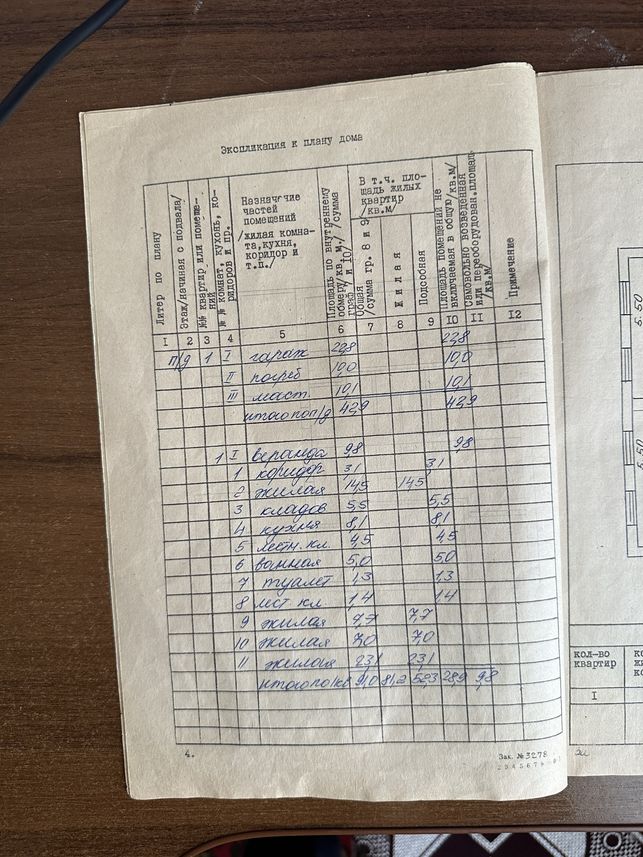 Экспликация к плану дома
Литер по плану
Этаж/начиная с подвала/
№№ квартир или помеще-
ний
№ № комнат, кухонь, ко-
ридоров и пр.
Назначение
частей
помещений
/жилая комна-
та,кухня,
коридор и
т.п./
Площадь по внутреннему
обмеру/кв.м./ /сумма
граф 7 и 10/
В т.ч. пло-
щадь жилых
квартир
/кв.м/
Общая
/сумма гр. 8 и 9
Жилая
Подсобная
Площадь помещений не
включаемая в общую/кв.м/
Самовольно возведенная
или переоборудован.площадь
/кв.м/
Примечание
I 2 3 4 5 6 7 8 9 10 11 12
п/д 1 I гараж 22,8 22,8
II погреб 10,0 10,0
III маст. 10,1 10,1
итого по п/д 42,9 42,9
1 I веранда 9,8 9,8
1 коридор 3,1 3,1
2 жилая 14,5 14,5
3 кладов 5,5 5,5
4 кухня 8,1 8,1
5 лестн. кл. 4,5 4,5
6 ванная 5,0 5,0
7 туалет 1,3 1,3
8 лест кл 1,4 1,4
9 жилая 7,7 7,7
10 жилая 7,0 7,0
11 жилая 23,1 23,1
итого по 1 кв 91,0 81,2 52,3 28,9 9,8
4.
Зак. №3278
5.50
5.50
кол-во
квартир
I